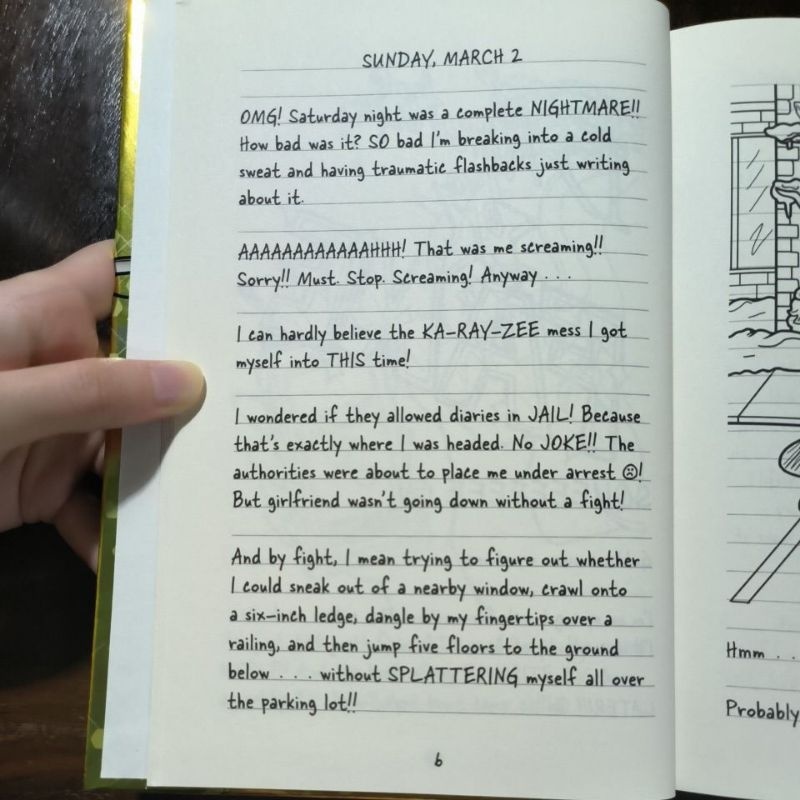 SUNDAY, MARCH 2
OMG! Saturday night was a complete NIGHTMARE!!
How bad was it? SO bad I'm breaking into a cold
sweat and having traumatic flashbacks just writing
about it.
AAAAAAAAAAAAHHH! That was me screaming!!
Sorry!! Must. Stop. Screaming! Anyway . . .
I can hardly believe the KA-RAY-ZEE mess I got
myself into THIS time!
I wondered if they allowed diaries in JAIL! Because
that's exactly where I was headed. No JOKE!! The
authorities were about to place me under arrest ☹!
But girlfriend wasn't going down without a fight!
And by fight, I mean trying to figure out whether
I could sneak out of a nearby window, crawl onto
a six-inch ledge, dangle by my fingertips over a
railing, and then jump five floors to the ground
below . . . without SPLATTERING myself all over
the parking lot!!
6
Hmm . .
Probably